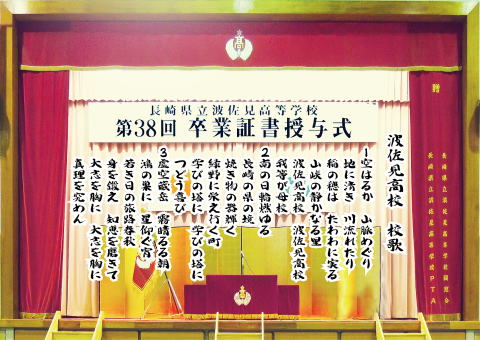 高
長崎県立波佐見高等学校
第38回 卒業証書授与式
贈
長崎県立波佐見高等学校同窓会
長崎県立波佐見高等学校PTA
波佐見高校 校歌
1空はるか 山脈めぐり
地に清き 川流れたり
稲の穂は たわわに実る
山峡の静かなる里
波佐見高校 波佐見高校
我等が母校
2南の日輪燃ゆる
長崎の県の境
焼き物の器輝く
緑野に栄え行く町
学びの塔に 学びの塔に
つどう喜び
3虚空蔵岳 霧晴るる朝
鴻の巣に 星仰ぐ宵
若き日の旅路春秋
身を鍛え 知恵を磨きて
大志を胸に 大志を胸に
真理を究めん